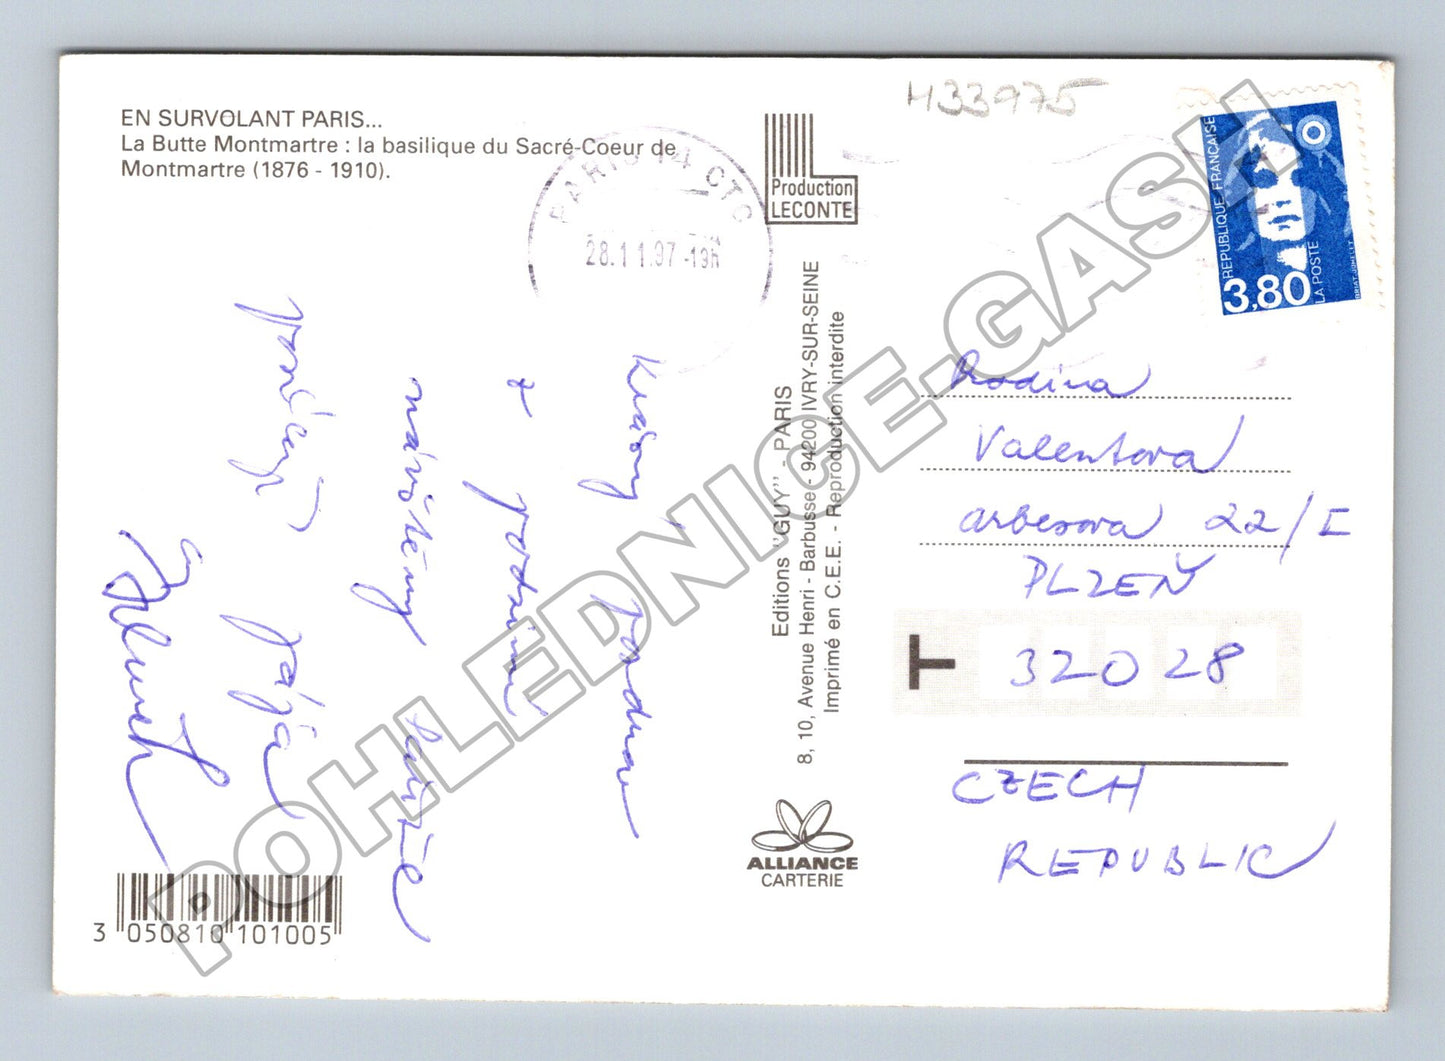 EN SURVOLANT PARIS...
La Butte Montmartre : la basilique du Sacré-Coeur de
Montmartre (1876 - 1910).
H33975
PARIS 14 CTC
28.11.97-19H
Production
LECONTE
REPUBLIQUE FRANÇAISE
3,80
LA POSTE
BRIAT-JUMELET
Krásný
a
pozdrav
posílají
pája
Rodina
Valentova
arbesova 22/I
PLZEŇ
T 320 28
CZECH
REPUBLIC
Editions "GUY" - PARIS
8, 10, Avenue Henri - Barbusse - 94200 IVRY-SUR-SEINE
Imprimé en C.E.E. - Reproduction interdite
ALLIANCE
CARTERIE
3 050810 101005
POHLEDNICE-GASH